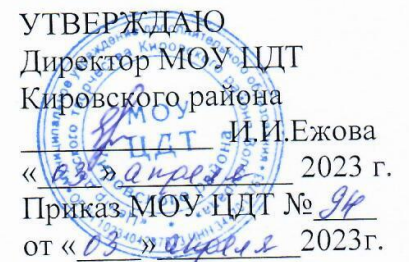 УТВЕРЖДАЮ
Директор МОУ ЦДТ
Кировского района
И.И.Ежова
«03» апреля 2023 г.
Приказ МОУ ЦДТ № 94
от «03» апреля 2023г.
МОУ
ЦДТ